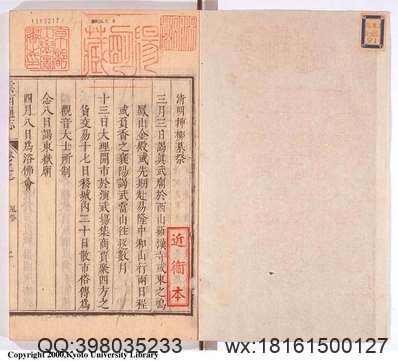 1183217
近衛本
清明挿柳墓祭
三月三日謁真武廟於西山羅漢寺或東之鳴
鳳山金殿或先期赴易隆中和山行兩日程
或負香之襄陽謁武當山往返數月
十三日大理開市於演武場集商賈聚四方之
貨交易十七日移城內二十日散市俗傳爲
觀音大士所制
念八日謁東嶽廟
四月八日爲浴佛會
QQ:398035233
wx:18161500127
Copyright 2000,Kyoto University Library